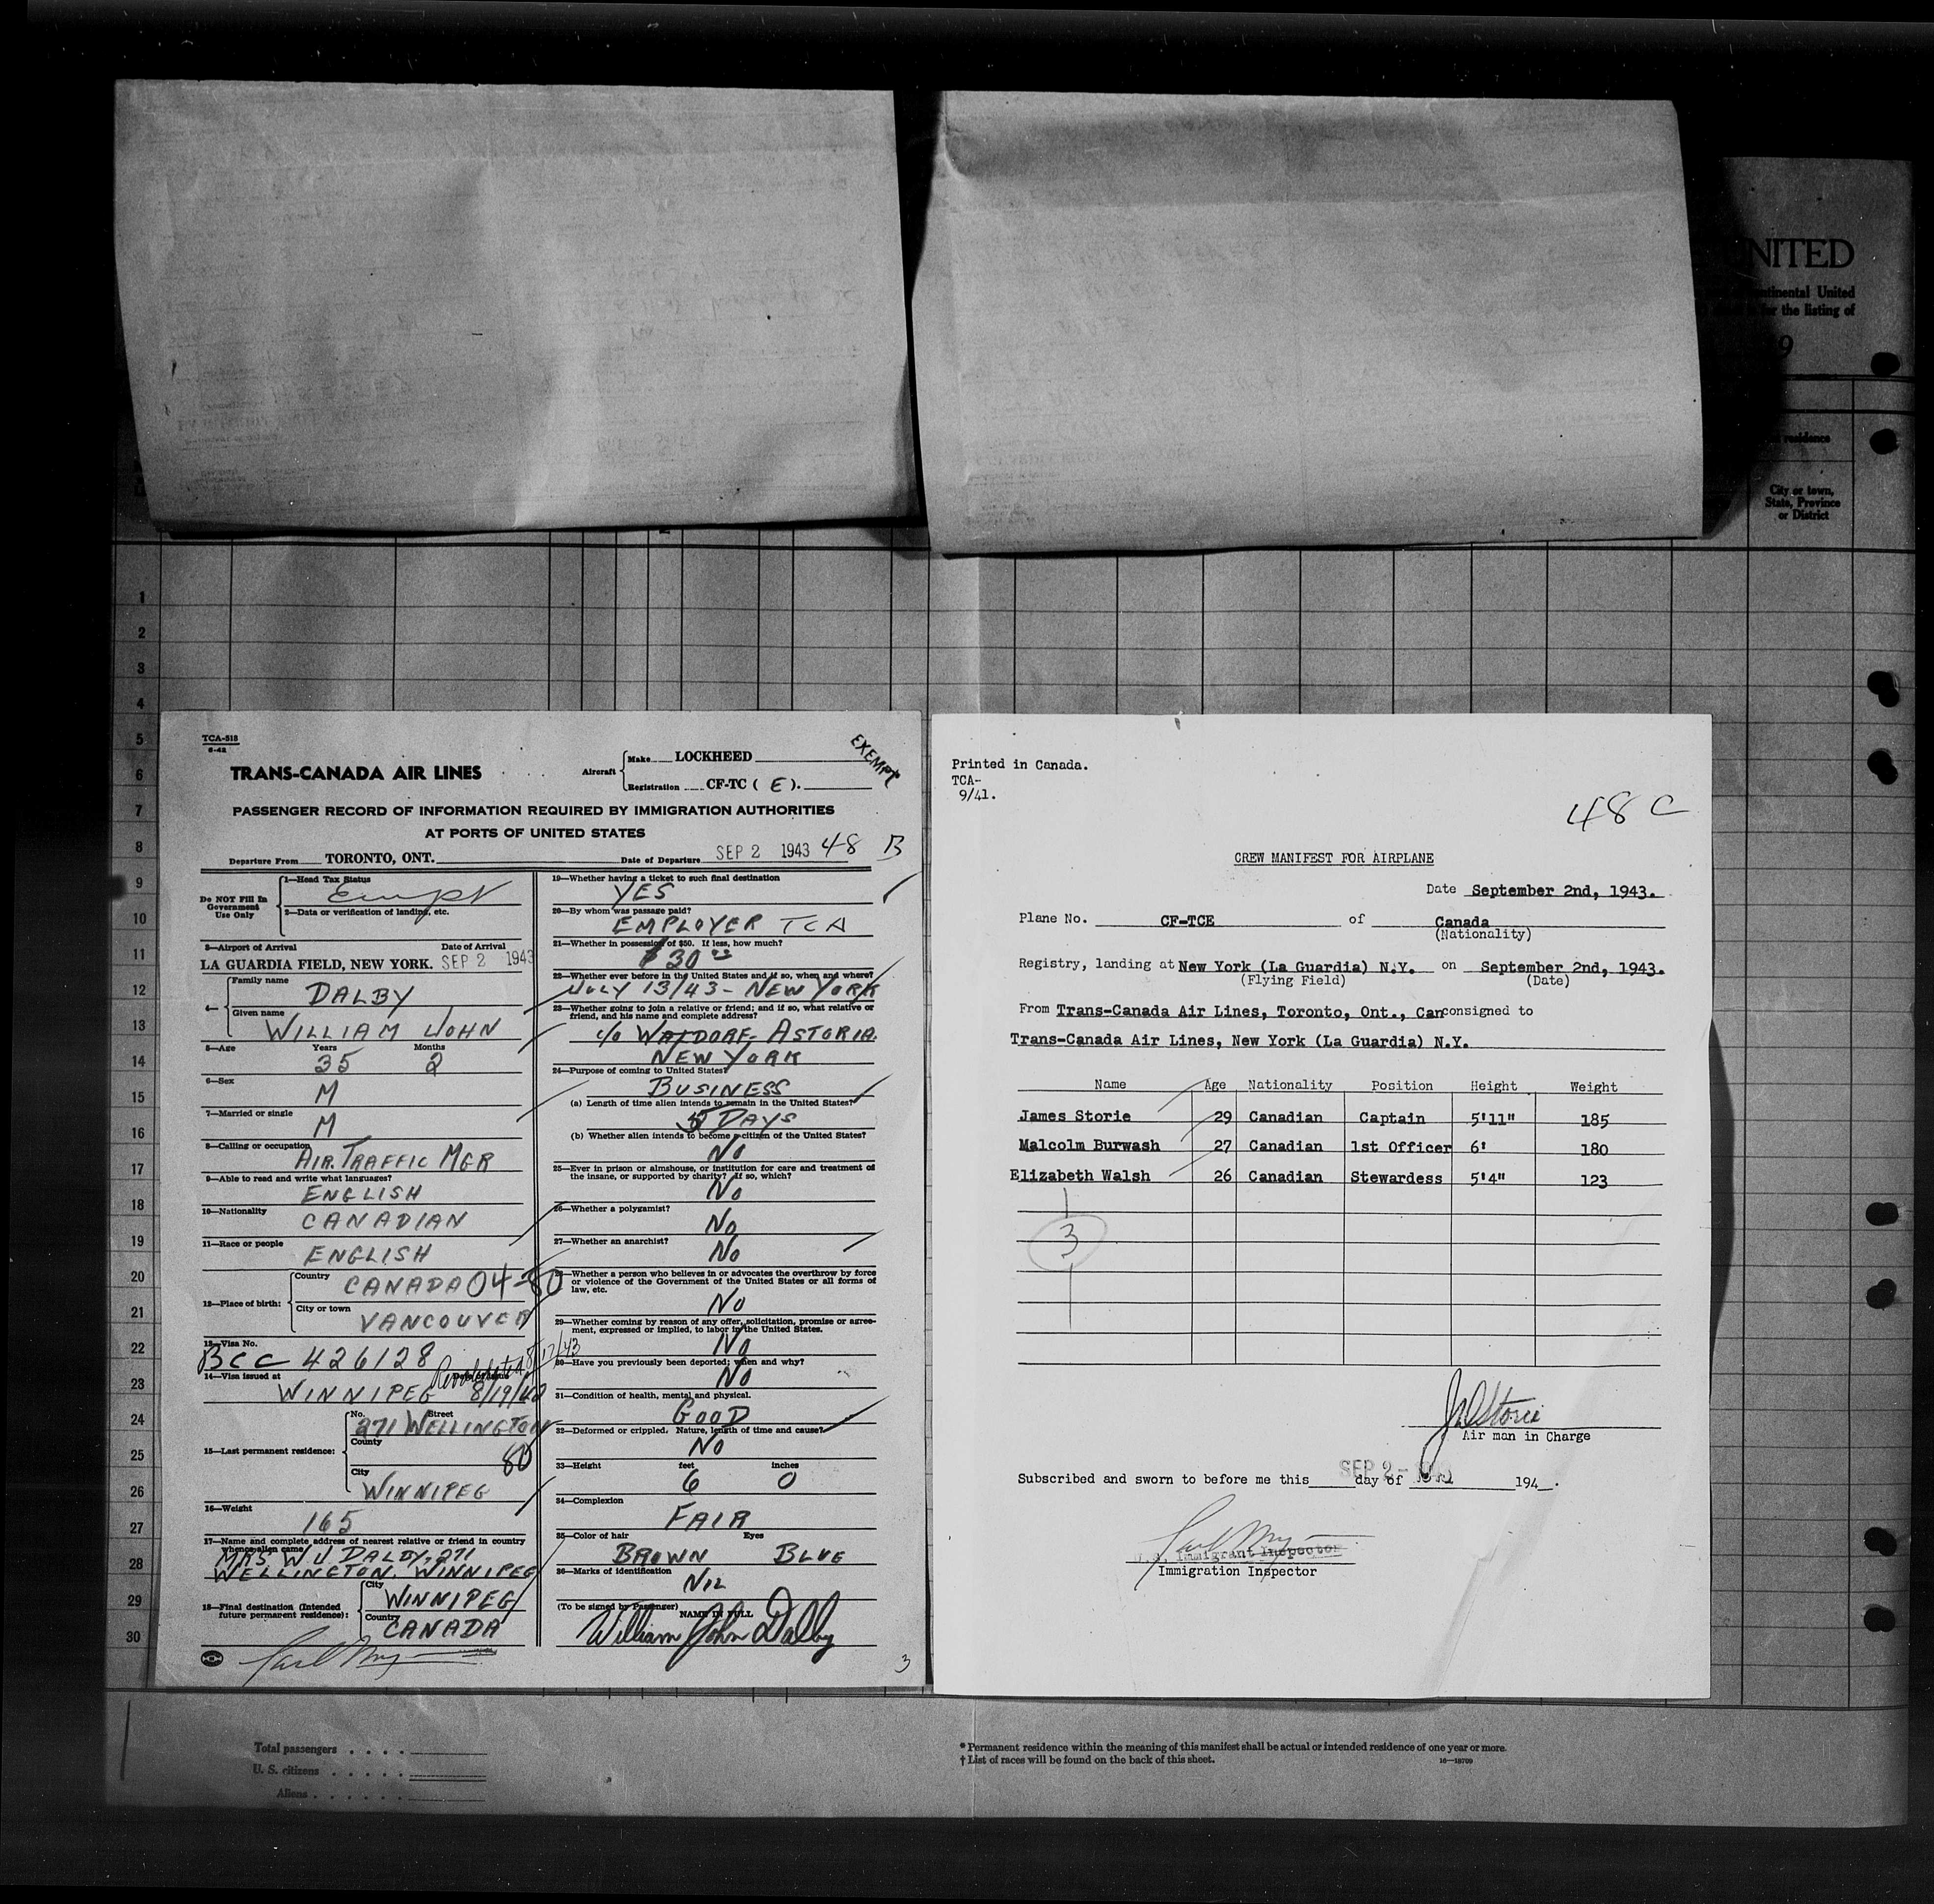 UNITED
Continental United
for the listing of
residence
City or town,
State, Province
or District
1
2
3
4
5
6
7
8
9
10
11
12
13
14
15
16
17
18
19
20
21
22
23
24
25
26
27
28
29
30
TCA-518
6-42
TRANS-CANADA AIR LINES
Aircraft
Make LOCKHEED
Registration CF-TC ( E ).
EXEMPT
PASSENGER RECORD OF INFORMATION REQUIRED BY IMMIGRATION AUTHORITIES
AT PORTS OF UNITED STATES
Departure From TORONTO, ONT. Date of Departure SEP 2 1943 48 B
Do NOT Fill In
Government
Use Only
1—Head Tax Status
Exempt
2—Data or verification of landing, etc.
3—Airport of Arrival Date of Arrival
LA GUARDIA FIELD, NEW YORK. SEP 2 1943
4—
Family name
DALBY
Given name
WILLIAM JOHN
5—Age Years Months
35 2
6—Sex
M
7—Married or single
M
8—Calling or occupation
AIR. TRAFFIC MGR
9—Able to read and write what languages?
ENGLISH
10—Nationality
CANADIAN
11—Race or people
ENGLISH
12—Place of birth:
Country
CANADA 04-80
City or town
VANCOUVER
13—Visa No.
BCC 426128
Revalidated 8/17/43
14—Visa issued at Date of issue
WINNIPEG 8/19/42
15—Last permanent residence:
No. Street
271 WELLINGTON
County
80
City
WINNIPEG
16—Weight
165
17—Name and complete address of nearest relative or friend in country
whence alien came
MRS W J DALBY, 271
WELLINGTON. WINNIPEG
18—Final destination (Intended
future permanent residence):
City
WINNIPEG
Country
CANADA
19—Whether having a ticket to such final destination
YES
20—By whom was passage paid?
EMPLOYER TCA
21—Whether in possession of $50. If less, how much?
$ 30 00
22—Whether ever before in the United States and if so, when and where?
JULY 13/43 - NEW YORK
23—Whether going to join a relative or friend; and if so, what relative or
friend, and his name and complete address?
c/o WALDORF. ASTORIA.
NEW YORK
24—Purpose of coming to United States?
BUSINESS
(a) Length of time alien intends to remain in the United States?
5 DAYS
(b) Whether alien intends to become a citizen of the United States?
NO
25—Ever in prison or almshouse, or institution for care and treatment of
the insane, or supported by charity? If so, which?
NO
26—Whether a polygamist?
NO
27—Whether an anarchist?
NO
28—Whether a person who believes in or advocates the overthrow by force
or violence of the Government of the United States or all forms of
law, etc.
NO
29—Whether coming by reason of any offer, solicitation, promise or agree-
ment, expressed or implied, to labor in the United States.
NO
30—Have you previously been deported; when and why?
NO
31—Condition of health, mental and physical.
GOOD
32—Deformed or crippled. Nature, length of time and cause?
NO
33—Height feet inches
6 0
34—Complexion
FAIR
35—Color of hair Eyes
BROWN BLUE
36—Marks of identification
NIL
(To be signed by Passenger) NAME IN FULL
William John Dalby
3
Printed in Canada.
TCA-
9/41.
48 C
CREW MANIFEST FOR AIRPLANE
Date September 2nd, 1943.
Plane No. CF-TCE of Canada
(Nationality)
Registry, landing at New York (La Guardia) N.Y. on September 2nd, 1943.
(Flying Field) (Date)
From Trans-Canada Air Lines, Toronto, Ont., Can consigned to
Trans-Canada Air Lines, New York (La Guardia) N.Y.
Name Age Nationality Position Height Weight
James Storie 29 Canadian Captain 5'11" 185
Malcolm Burwash 27 Canadian 1st Officer 6' 180
Elizabeth Walsh 26 Canadian Stewardess 5'4" 123
3
Air man in Charge
Subscribed and sworn to before me this SEP 2 - 1943 day of 194 .
U.S. Immigrant Inspector
Immigration Inspector
Total passengers
U. S. citizens
Aliens
* Permanent residence within the meaning of this manifest shall be actual or intended residence of one year or more.
† List of races will be found on the back of this sheet. 16—18700